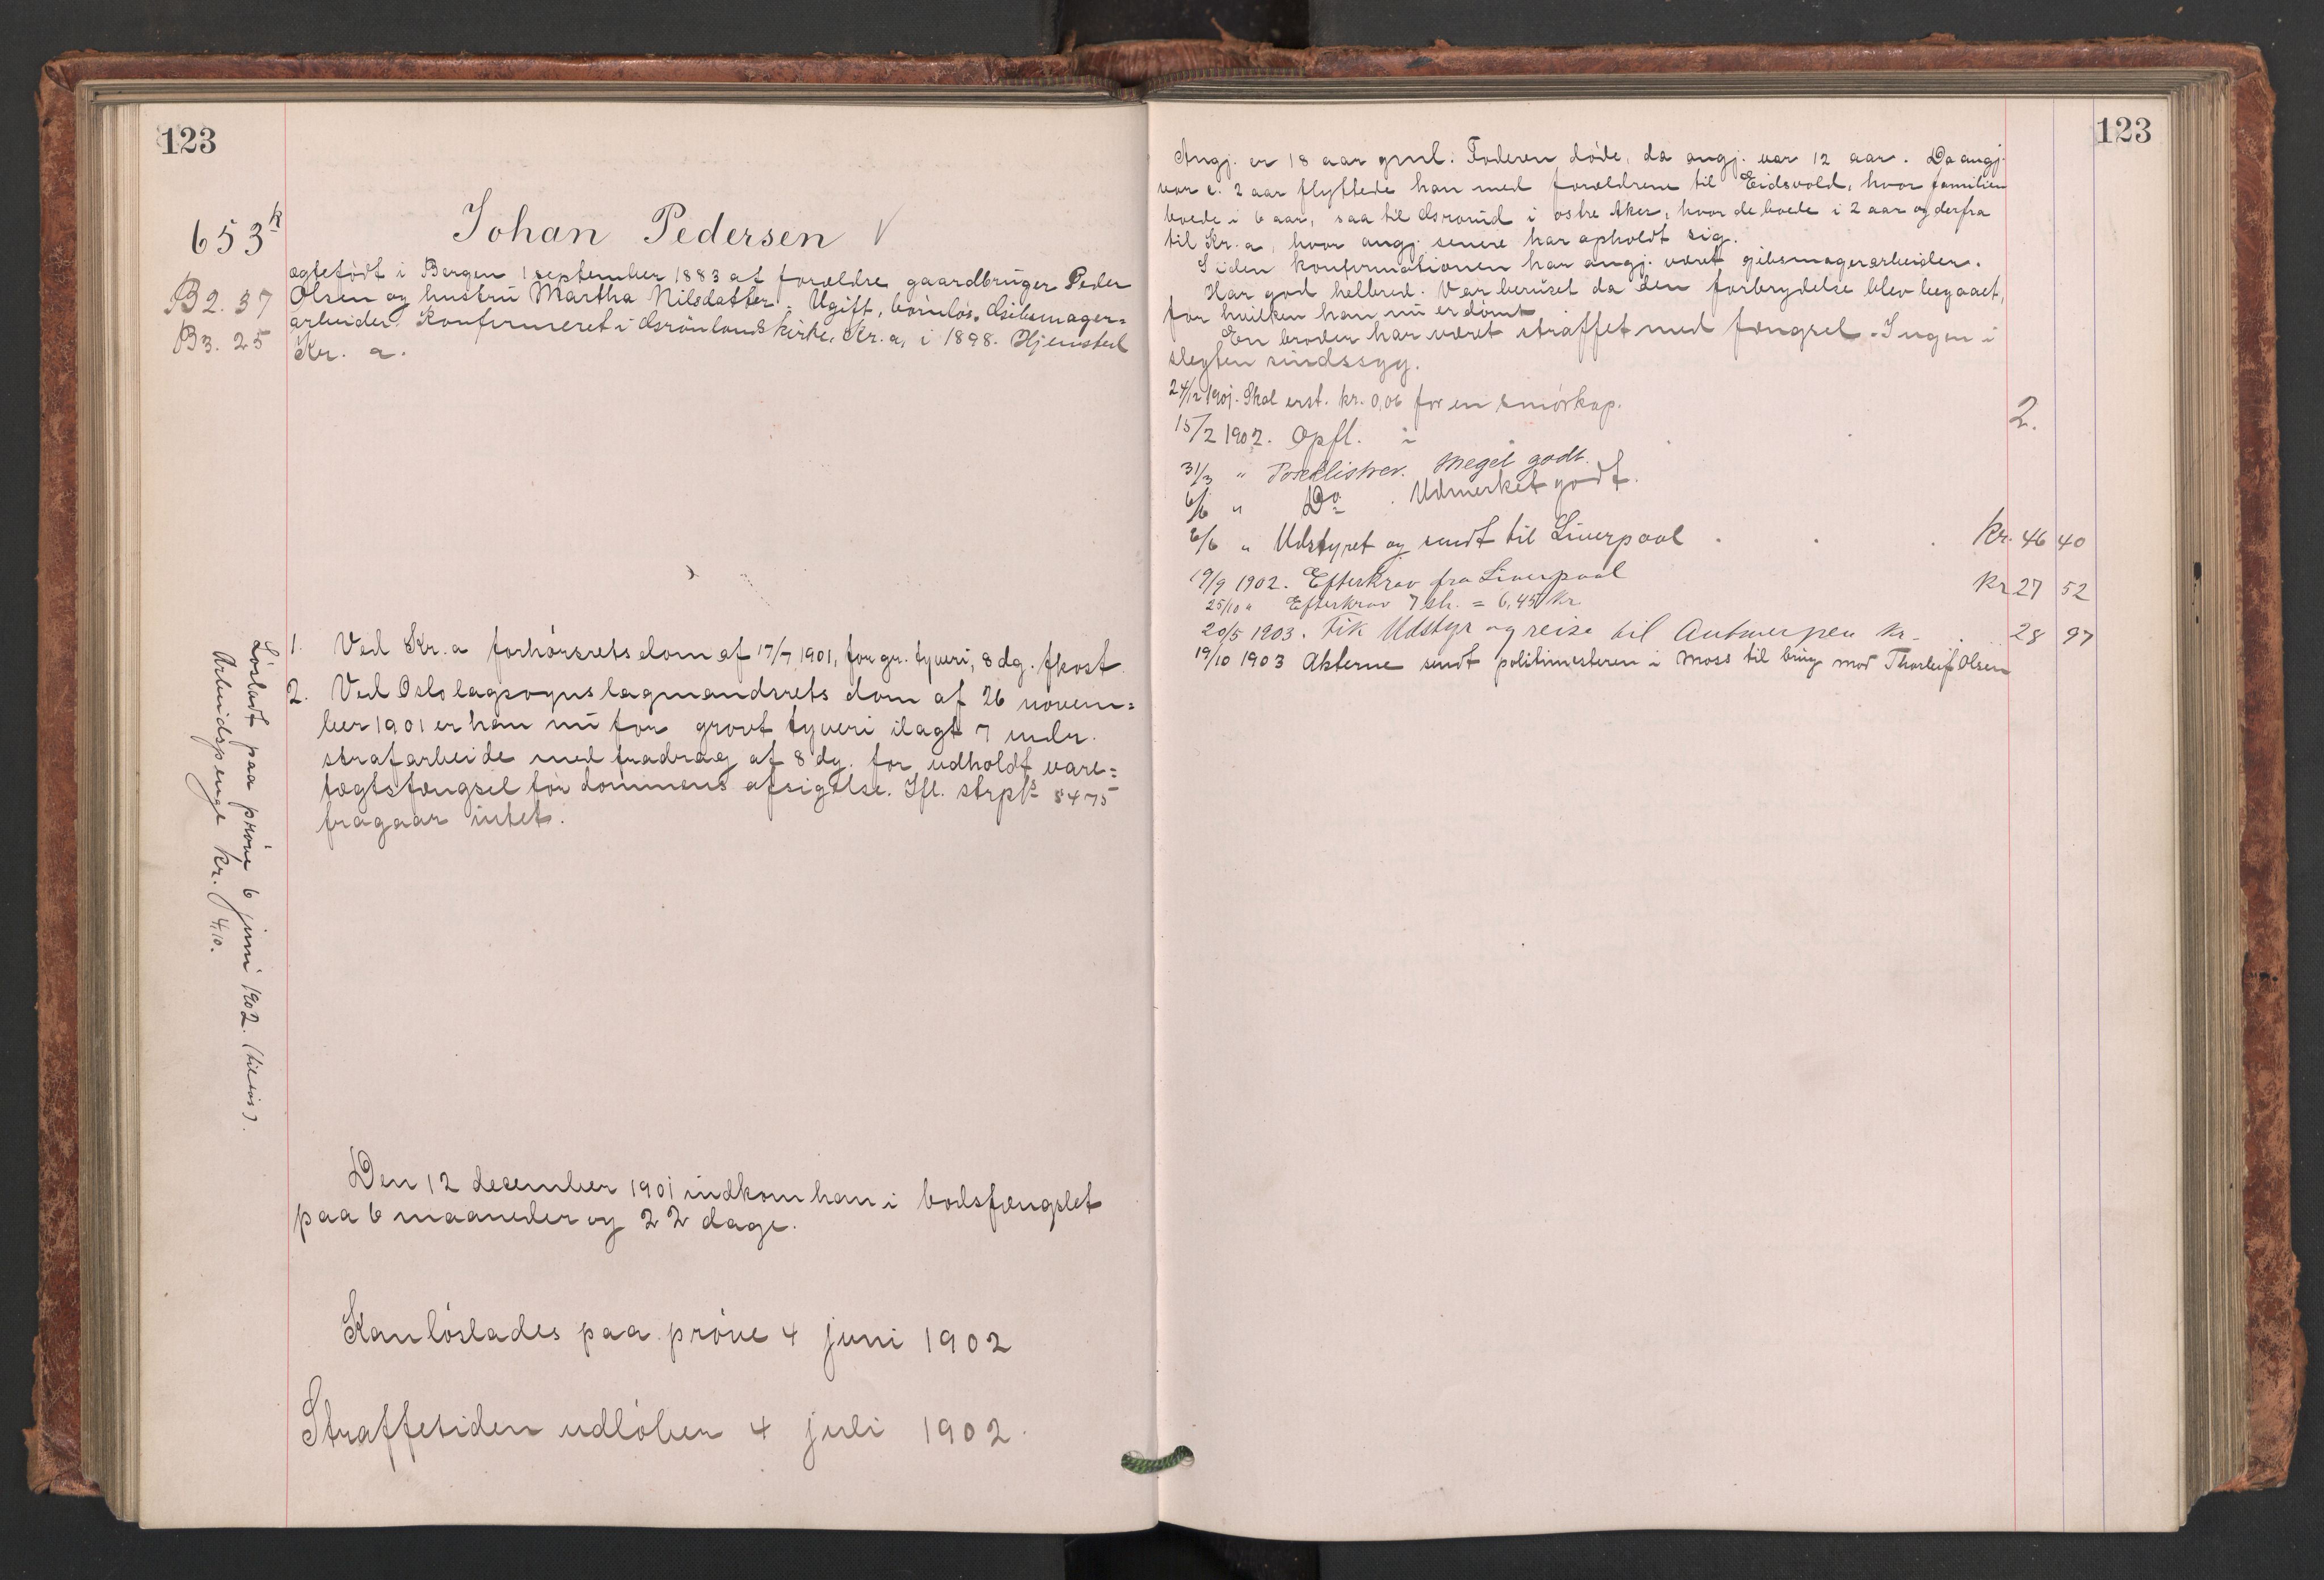 123
653 k
Johan Pedersen V
B2. 37
B3. 25
ægtefødt i Bergen 1 september 1883 af forældre gaardbruger Peder
Olsen og hustru Martha Nilsdatter. Ugift, børnløs. Gibsmager=
arbeider. Konfirmeret i Grønlands kirke, Kr.a, i 1898. Hjemsted
Kr. a.
1. Ved Kr.a forhørsrets dom af 17/7 1901, for gr. tyveri, 8 dg. fkost.
2. Ved Oslo lagsogns lagmandsrets dom af 26 novem=
ber 1901 er han nu for grovt tyveri ilagt 7 mdr.
strafarbeide med fradrag af 8 dg. for udholdt vare=
tægtsfængsel før dommens afsigelse. Ifl. strpls § 475
fragaar intet.
Løsladt paa prøve 6 juni 1902. (tilsøs).
Arbeidspenge kr. 4,10.
Den 12 december 1901 indkom han i bodsfængslet
paa 6 maaneder og 22 dage.
Kan løslades paa prøve 4 juni 1902
Straffetiden udløber 4 juli 1902.
123
Angj. er 18 aar gml. Faderen døde, da angj. var 12 aar. Da angj.
var c. 2 aar flyttede han med forældrene til Eidsvold, hvor familien
boede i 6 aar, saa til Grorud i østre Aker, hvor de boede i 2 aar og derfra
til Kr.a, hvor angj. senere har opholdt sig.
Siden konfirmationen har angj. været gibsmagerarbeider.
Har god helbred. Var beruset da den forbrydelse blev begaaet,
for hvilken han nu er dømt.
En broder har været straffet med fængsel. Ingen i
slegten sindssyg.
24/12 1901. Skal erst. kr. 0,06 for en smørkop.
15/2 1902. Opfl. i 2.
31/3 " Meget godt.
6/6 " Do . Udmerket godt.
6/6 " Udstyret og sendt til Liverpool . . . Kr. 46 40
19/9 1902. Efterkrav fra Liverpool Kr 27 52
25/10 " Efterkrav 7 sh. = 6,45 kr
20/5 1903. Fik Udstyr og reise til Antwerpen kr. . . 28 97
19/10 1903 Akterne sendt politimesteren i Moss til brug mod Thorleif Olsen